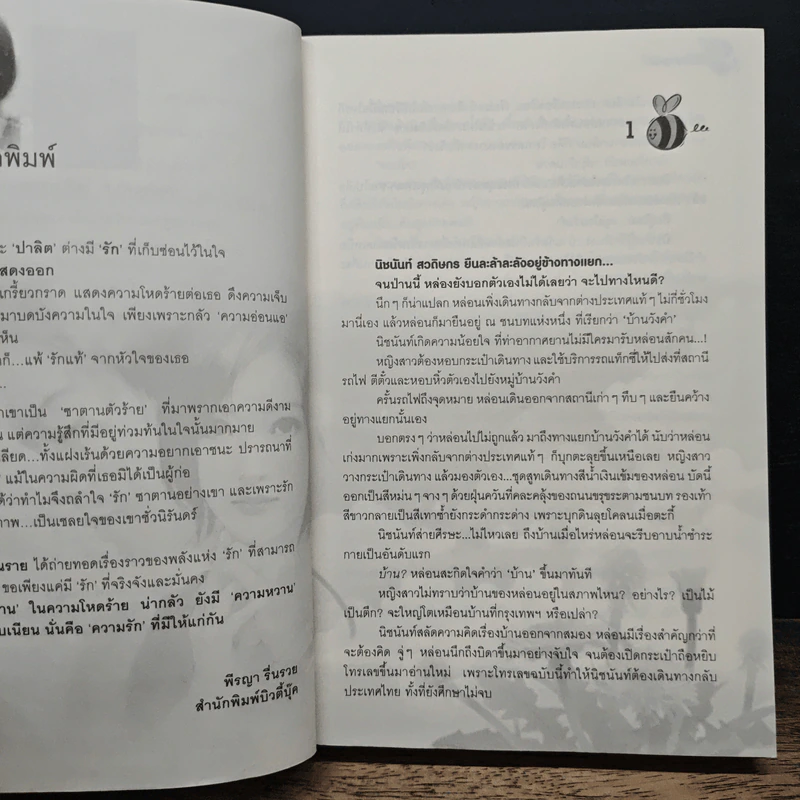 พิมพ์
ะ 'ปาลิต' ต่างมี 'รัก' ที่เก็บซ่อนไว้ในใจ
สดงออก
เกรี้ยวกราด แสดงความโหดร้ายต่อเธอ ดึงความเจ็บ
มาบดบังความในใจ เพียงเพราะกลัว 'ความอ่อนแอ'
ห็น
ก็...แพ้ 'รักแท้' จากหัวใจของเธอ
...
าเขาเป็น 'ซาตานตัวร้าย' ที่มาพรากเอาความดีงาม
น แต่ความรู้สึกที่มีอยู่ท่วมท้นในใจนั้นมากมาย
ลียด...ทั้งแฝงเร้นด้วยความอยากเอาชนะ ปรารถนาที่
แม้ในความผิดที่เธอมิได้เป็นผู้ก่อ
ด้ว่าทำไมจึงถลำใจ 'รัก' ซาตานอย่างเขา และเพราะรัก
าพ...เป็นเชลยใจของเขาชั่วนิรันดร์
นราย ได้ถ่ายทอดเรื่องราวของพลังแห่ง 'รัก' ที่สามารถ
ขอเพียงแค่มี 'รัก' ที่จริงจังและมั่นคง
าน' ในความโหดร้าย น่ากลัว ยังมี 'ความหวาน'
บเนียน นั่นคือ 'ความรัก' ที่มีให้แก่กัน
พีรญา รื่นรวย
สำนักพิมพ์บิวตี้บุ๊ค
1
นิชนันท์ สวถิษกร ยืนละล้าละลังอยู่ข้างทางแยก...
จนป่านนี้ หล่องยังบอกตัวเองไม่ได้เลยว่า จะไปทางไหนดี?
นึก ๆ ก็น่าแปลก หล่อนเพิ่งเดินทางกลับจากต่างประเทศแท้ ๆ ไม่กี่ชั่วโมง
มานี่เอง แล้วหล่อนก็มายืนอยู่ ณ ชนบทแห่งหนึ่ง ที่เรียกว่า 'บ้านวังคำ'
นิชนันท์เกิดความน้อยใจ ที่ท่าอากาศยานไม่มีใครมารับหล่อนสักคน...!
หญิงสาวต้องหอบกระเป๋าเดินทาง และใช้บริการรถแท็กซี่ให้ไปส่งที่สถานี
รถไฟ ตีตั๋วและหอบหิ้วตัวเองไปยังหมู่บ้านวังคำ
ครั้นรถไฟถึงจุดหมาย หล่อนเดินออกจากสถานีเก่า ๆ ทึบ ๆ และยืนคว้าง
อยู่ทางแยกนั้นเอง
บอกตรง ๆ ว่าหล่อนไปไม่ถูกแล้ว มาถึงทางแยกบ้านวังคำได้ นับว่าหล่อน
เก่งมากเพราะเพิ่งกลับจากต่างประเทศแท้ ๆ ก็บุกตะลุยขึ้นเหนือเลย หญิงสาว
วางกระเป๋าเดินทาง แล้วมองตัวเอง...ชุดสูทเดินทางสีน้ำเงินเข้มของหล่อน บัดนี้
ออกเป็นสีหม่น ๆ จาง ๆ ด้วยฝุ่นควันที่คละคลุ้งของถนนขรุขระตามชนบท รองเท้า
สีขาวกลายเป็นสีเทาซ้ำยังกระดำกระด่าง เพราะบุกดินลุยโคลนเมื่อตะกี้
นิชนันท์ส่ายศีรษะ...ไม่ไหวเลย ถึงบ้านเมื่อไหร่หล่อนจะรีบอาบน้ำชำระ
กายเป็นอันดับแรก
บ้าน? หล่อนสะกิดใจคำว่า 'บ้าน' ขึ้นมาทันที
หญิงสาวไม่ทราบว่าบ้านของหล่อนอยู่ในสภาพไหน? อย่างไร? เป็นไม้
เป็นตึก? จะใหญ่โตเหมือนบ้านที่กรุงเทพฯ หรือเปล่า?
นิชนันท์สลัดความคิดเรื่องบ้านออกจากสมอง หล่อนมีเรื่องสำคัญกว่าที่
จะต้องคิด จู่ ๆ หล่อนนึกถึงบิดาขึ้นมาอย่างจับใจ จนต้องเปิดกระเป๋าถือหยิบ
โทรเลขขึ้นมาอ่านใหม่ เพราะโทรเลขฉบับนี้ทำให้นิชนันท์ต้องเดินทางกลับ
ประเทศไทย ทั้งที่ยังศึกษาไม่จบ